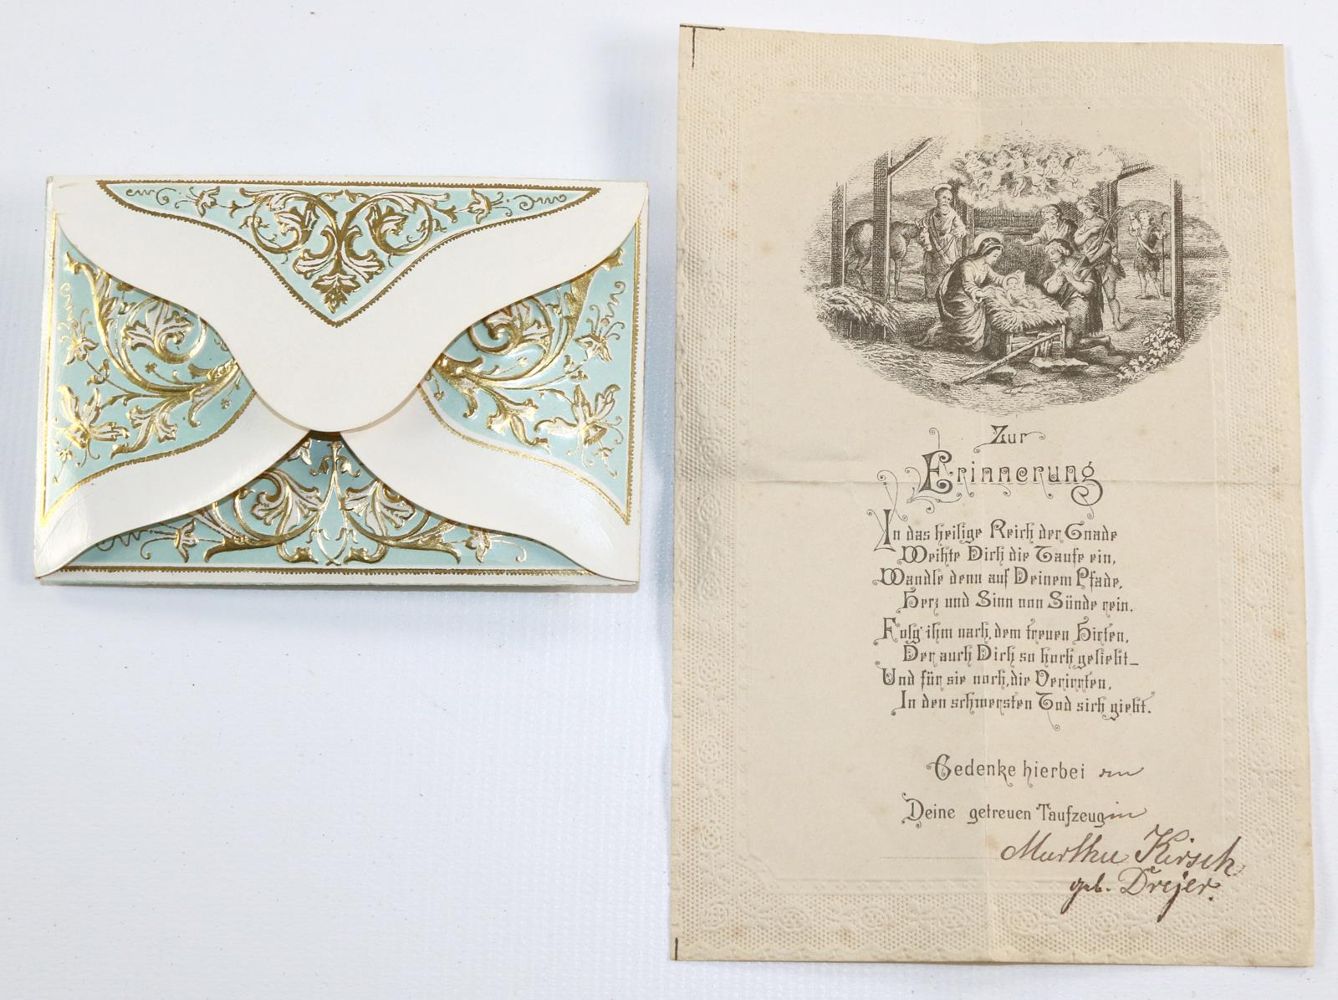 Zur
Erinnerung
In das heilige Reich der Gnade
Weihte Dich die Taufe ein,
Wandle denn auf Deinem Pfade,
Herz und Sinn von Sünde rein.
Folg' ihm nach, dem treuen Hirten,
Der auch Dich so hoch geliebt_
Und für sie noch, die Verirrten,
In den schwersten Tod sich giebt.
Gedenke hierbei an
Deine getreuen Taufzeugin
Martha Kirsch
geb. Drejer.